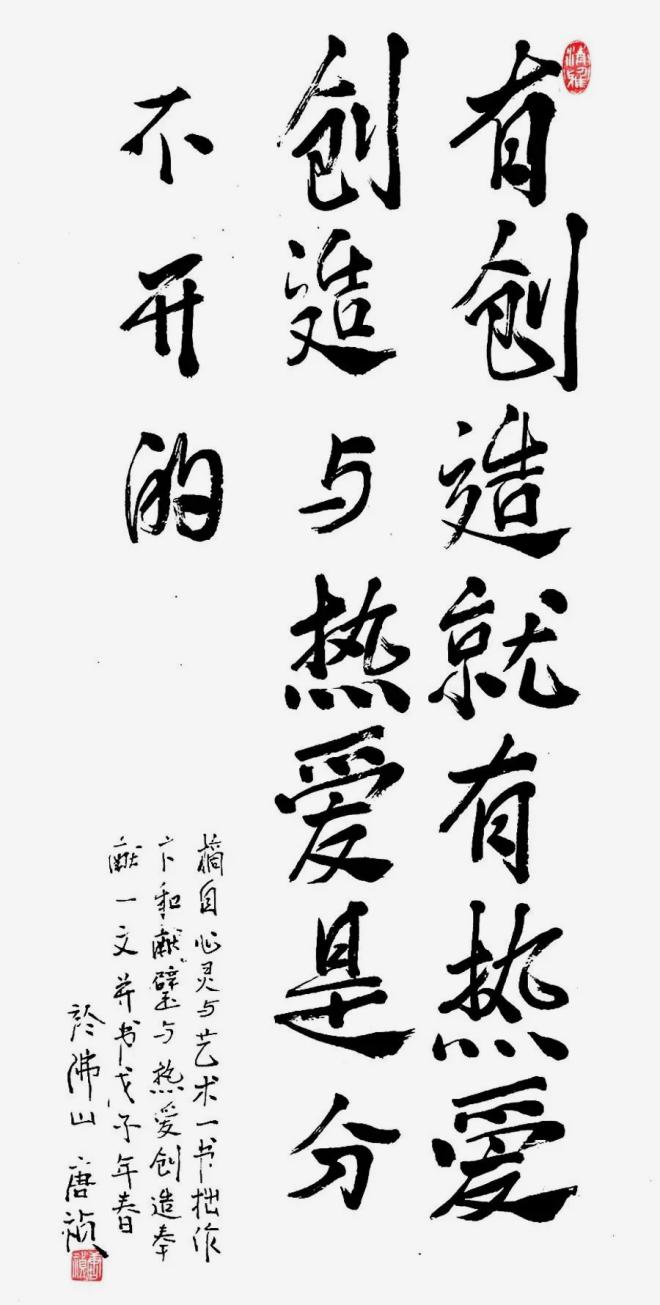 有创造就有热爱
创造与热爱是分
不开的
摘自心灵与艺术一书拙作
卞和献璧与热爱创造奉
献一文并书戊子年春
於佛山 唐祯